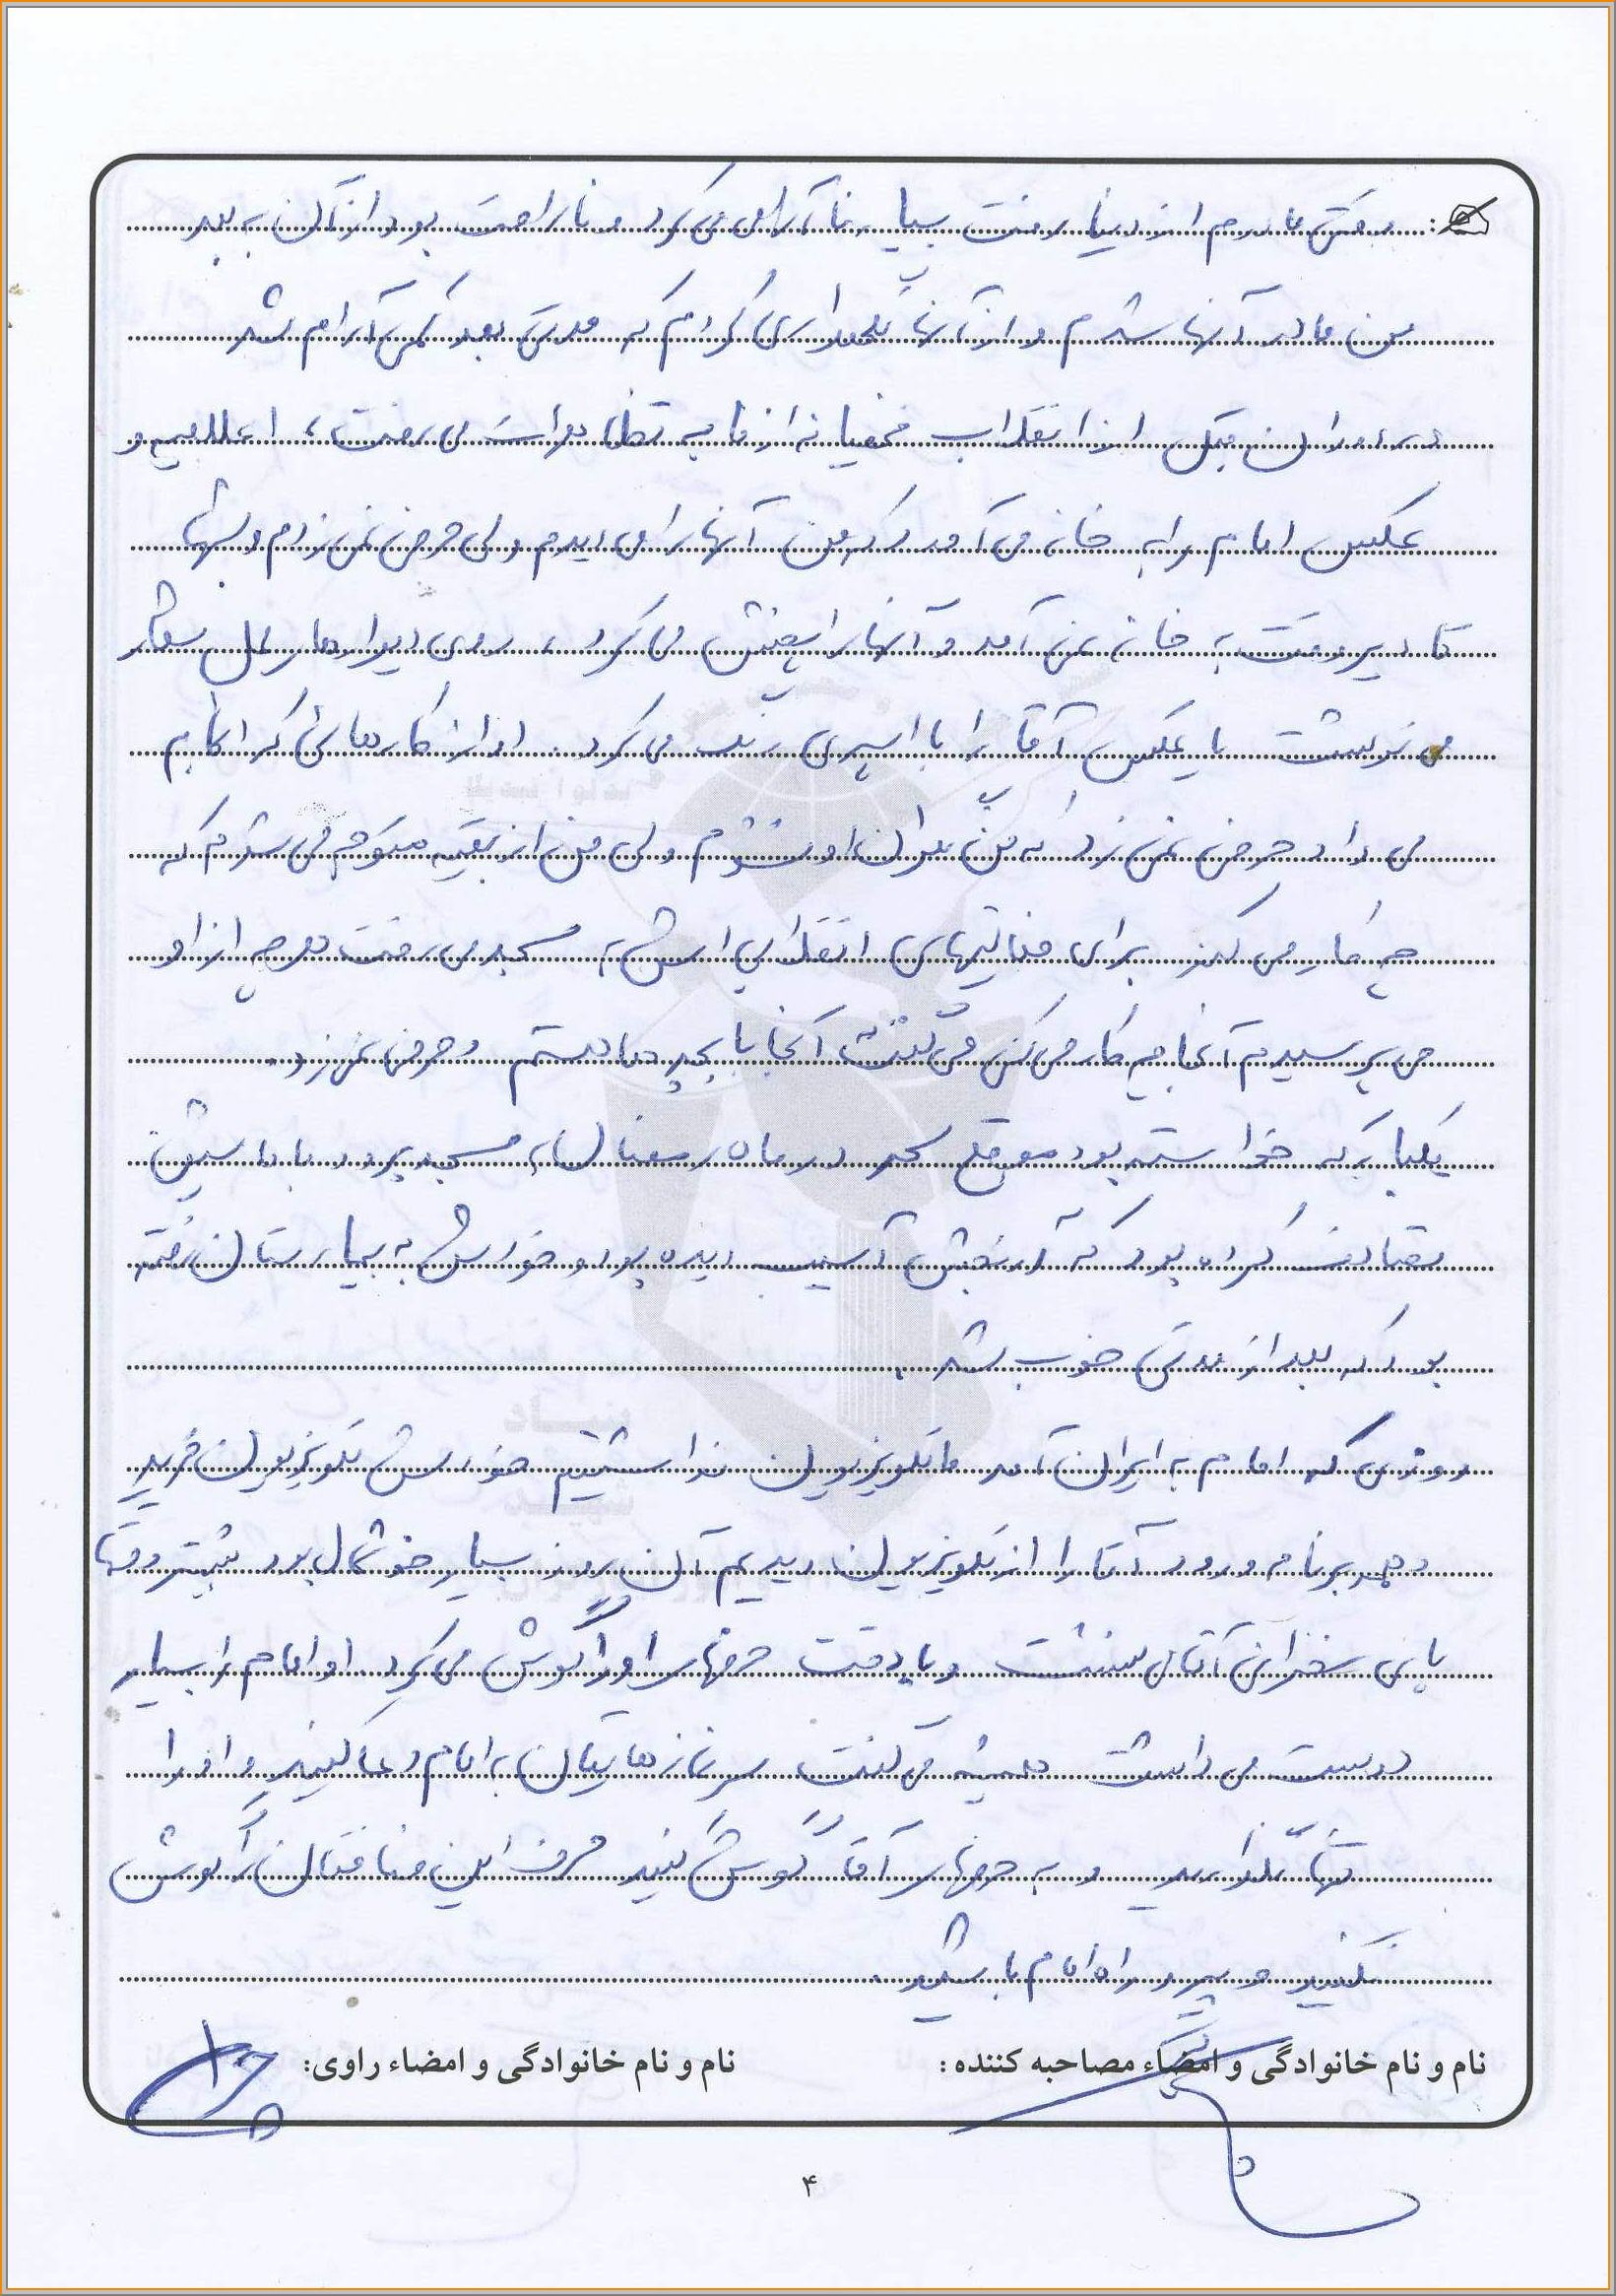 وقتی مادرم از دنیا رفت بسیار ناآرامی می کرد و ناراحت بود از آن به بعد
من مادر آنها شدم و از آنها نگهداری کردم که مدتی بعد کمی آرام شد
در دوران قبل از انقلاب مخفیانه از ما به تظاهرات می رفت، اعلامیه و
عکس امام را به خانه می آورد که من آنها را می دیدم ولی حرفی نمی زدم و شبها
تا دیر وقت به خانه نمی آمد و آنها را پخش می کرد، روی دیوارها شعار
می نوشت یا عکس آقا را با اسپری رنگ می کرد. او از کارهائی که انجام
می داد حرفی نمی زد که من نگران او نشوم ولی من از بقیه متوجه می شدم که
چه کار می کند برای فعالیتهای انقلابی اش به مسجد می رفت هر چه از او
می پرسیدم آنجا چه کار می کنی می گفت آنجا با بچه ها هستم و حرفی نمی زد.
یکبار که خواسته بود موقع سحر در ماه رمضان به مسجد برود با ماشین
تصادف کرده بود که آرنجش آسیب دیده بود و خودش به بیمارستان رفته
بود که بعد از مدتی خوب شد.
روزی که امام به ایران آمد ما تلویزیون نداشتیم خودش تلویزیون خرید
و همه برنامه ورود آقا را از تلویزیون دیدیم آن روز بسیار خوشحال بود بیشتر وقتها
پای سخنرانی آقا می نشست و با دقت حرفهای او را گوش می کرد. او امام را بسیار
دوست می داشت همیشه می گفت سر نمازهایتان به امام دعا کنید و او را
تنها نگذارید و به حرفهای آقا گوش کنید حرف این منافقان را گوش
نکنید و پیرو راه امام باشید.
نام و نام خانوادگی و امضاء مصاحبه کننده: نام و نام خانوادگی و امضاء راوی:
۴